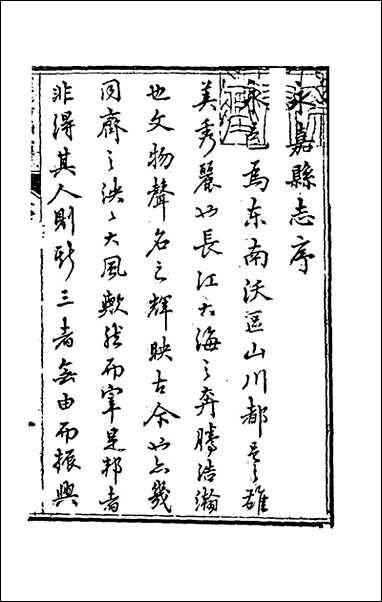 永嘉縣志序
永邑為东南沃區山川都雄
美秀麗如長江大海之奔騰浩瀚
也文物聲名之輝映古今亦幾
同齊之泱〻大風歟然而宰是邦者
非得其人則斯三者無由而振興